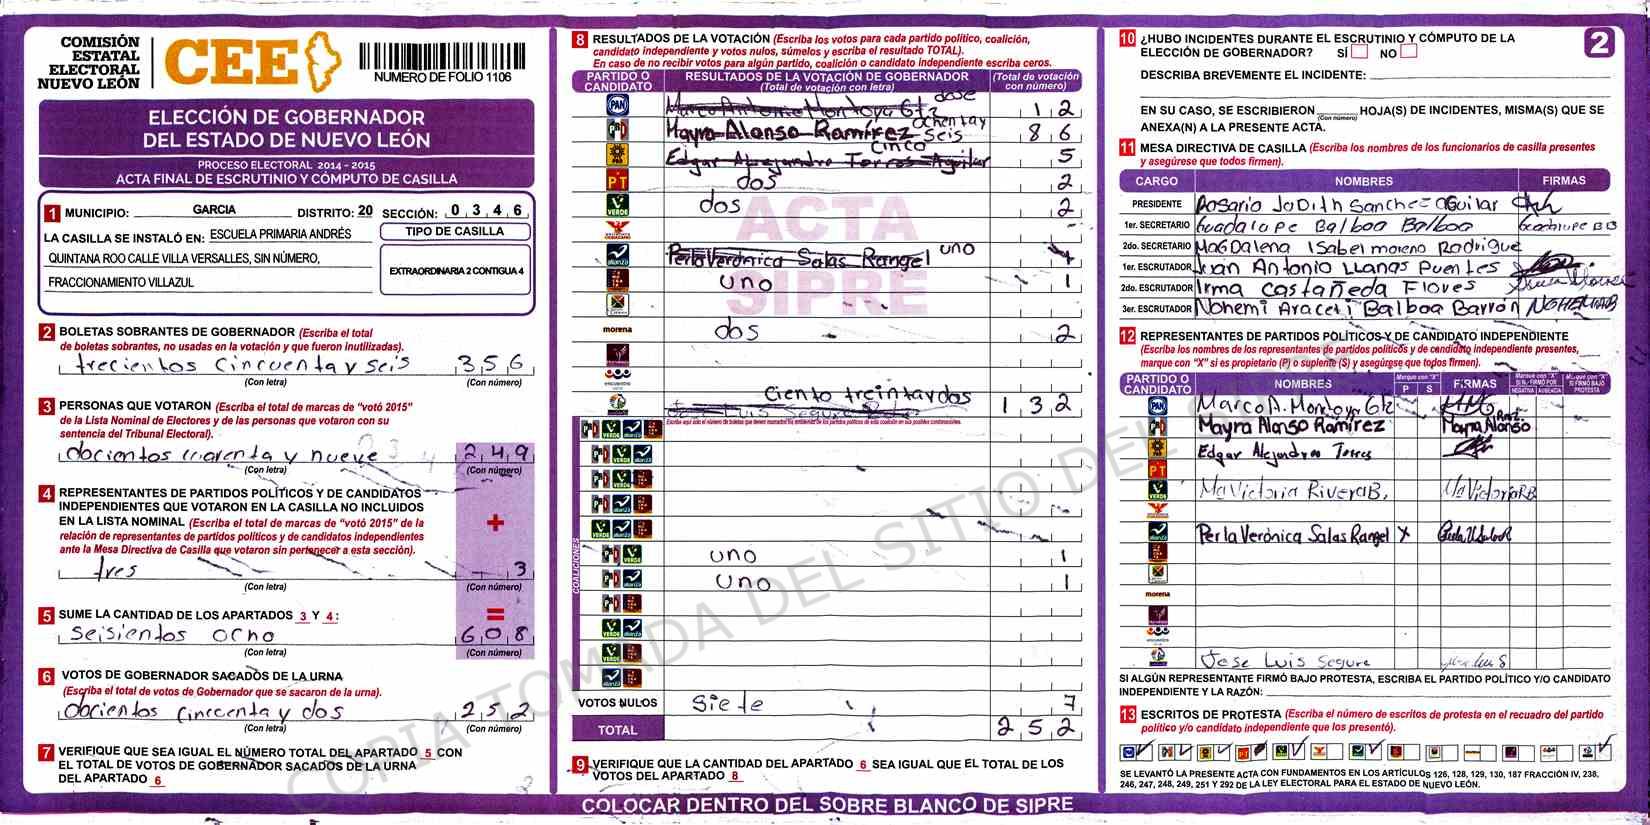 COMISIÓN
ESTATAL
ELECTORAL
NUEVO LEÓN
CEE
NUMERO DE FOLIO 1106
ELECCIÓN DE GOBERNADOR
DEL ESTADO DE NUEVO LEÓN
PROCESO ELECTORAL 2014 - 2015
ACTA FINAL DE ESCRUTINIO Y CÓMPUTO DE CASILLA
1 MUNICIPIO: GARCIA DISTRITO: 20 SECCIÓN: 0 3 4 6
LA CASILLA SE INSTALÓ EN: ESCUELA PRIMARIA ANDRÉS
QUINTANA ROO CALLE VILLA VERSALLES, SIN NÚMERO,
FRACCIONAMIENTO VILLAZUL
TIPO DE CASILLA
EXTRAORDINARIA 2 CONTIGUA 4
2 BOLETAS SOBRANTES DE GOBERNADOR (Escriba el total
de boletas sobrantes, no usadas en la votación y que fueron inutilizadas).
trecientos cincuenta y seis 3 5 6
(Con letra) (Con número)
3 PERSONAS QUE VOTARON (Escriba el total de marcas de "votó 2015"
de la Lista Nominal de Electores y de las personas que votaron con su
sentencia del Tribunal Electoral).
docientos cuarenta y nueve 2 4 9
(Con letra) (Con número)
4 REPRESENTANTES DE PARTIDOS POLÍTICOS Y DE CANDIDATOS
INDEPENDIENTES QUE VOTARON EN LA CASILLA NO INCLUIDOS
EN LA LISTA NOMINAL (Escriba el total de marcas de "votó 2015" de la
relación de representantes de partidos políticos y de candidatos independientes
ante la Mesa Directiva de Casilla que votaron sin pertenecer a esta sección).
+
tres 3
(Con letra) (Con número)
5 SUME LA CANTIDAD DE LOS APARTADOS 3 Y 4:
=
seisientos ocho 6 0 8
(Con letra) (Con número)
6 VOTOS DE GOBERNADOR SACADOS DE LA URNA
(Escriba el total de votos de Gobernador que se sacaron de la urna).
docientos cincuenta y dos 2 5 2
(Con letra) (Con número)
7 VERIFIQUE QUE SEA IGUAL EL NÚMERO TOTAL DEL APARTADO 5 CON
EL TOTAL DE VOTOS DE GOBERNADOR SACADOS DE LA URNA
DEL APARTADO 6
8 RESULTADOS DE LA VOTACIÓN (Escriba los votos para cada partido político, coalición,
candidato independiente y votos nulos, súmelos y escriba el resultado TOTAL).
En caso de no recibir votos para algún partido, coalición o candidato independiente escriba ceros.
PARTIDO O CANDIDATO
RESULTADOS DE LA VOTACIÓN DE GOBERNADOR
(Total de votación con letra)
(Total de votación con número)
PAN Marco Antonio Montoya Gtz dose 1 2
PRD Mayra Alonso Ramírez ochenta y seis 8 6
PRD Edgar Alejandro Torres Aguilar cinco 5
PT dos 2
VERDE dos 2
alianza Perla Verónica Salas Rangel uno 1
uno 1
morena dos 2
encuentro
ciento treinta y dos 1 3 2
Jose Luis Segura
COALICIONES
uno 1
uno 1
VOTOS NULOS siete 7
TOTAL 2 5 2
ACTA
SIPRE
9 VERIFIQUE QUE LA CANTIDAD DEL APARTADO 6 SEA IGUAL QUE EL TOTAL DE LOS
VOTOS DEL APARTADO 8
2
10 ¿HUBO INCIDENTES DURANTE EL ESCRUTINIO Y CÓMPUTO DE LA
ELECCIÓN DE GOBERNADOR? SÍ NO
DESCRIBA BREVEMENTE EL INCIDENTE:
EN SU CASO, SE ESCRIBIERON HOJA(S) DE INCIDENTES, MISMA(S) QUE SE
(Con número)
ANEXA(N) A LA PRESENTE ACTA.
11 MESA DIRECTIVA DE CASILLA (Escriba los nombres de los funcionarios de casilla presentes
y asegúrese que todos firmen).
CARGO NOMBRES FIRMAS
PRESIDENTE Rosario Judith Sanchez Aguilar
1er. SECRETARIO Guadalupe Balboa Balboa Guadalupe BB
2do. SECRETARIO Magdalena Isabel moreno Rodrigue
1er. ESCRUTADOR Juan Antonio Llanas Puentes
2do. ESCRUTADOR Irma Castañeda Flores
3er. ESCRUTADOR Nohemi Araceli Balboa Barrón NOHEMIAB
12 REPRESENTANTES DE PARTIDOS POLÍTICOS Y DE CANDIDATO INDEPENDIENTE
(Escriba los nombres de los representantes de partidos políticos y de candidato independiente presentes,
marque con "X" si es propietario (P) o suplente (S) y asegúrese que todos firmen).
PARTIDO O CANDIDATO NOMBRES Marque con "X" P S FIRMAS Marque con "X" SI NO FIRMÓ POR NEGATIVA AUSENCIA Marque con "X" SI FIRMÓ BAJO PROTESTA
PAN Marco A. Montoya Gtz
Mayra Alonso Ramírez Mayra Alonso Rmz.
Edgar Alejandro Torres
PT
VERDE Ma Victoria Rivera B. Ma Victoria RB
alianza Perla Verónica Salas Rangel X
morena
Jose Luis Segura
SI ALGÚN REPRESENTANTE FIRMÓ BAJO PROTESTA, ESCRIBA EL PARTIDO POLÍTICO Y/O CANDIDATO
INDEPENDIENTE Y LA RAZÓN:
13 ESCRITOS DE PROTESTA (Escriba el número de escritos de protesta en el recuadro del partido
político y/o candidato independiente que los presentó).
SE LEVANTÓ LA PRESENTE ACTA CON FUNDAMENTOS EN LOS ARTÍCULOS 126, 128, 129, 130, 187 FRACCIÓN IV, 238,
246, 247, 248, 249, 251 Y 292 DE LA LEY ELECTORAL PARA EL ESTADO DE NUEVO LEÓN.
COLOCAR DENTRO DEL SOBRE BLANCO DE SIPRE
COPIA TOMADA DEL SITIO DEL